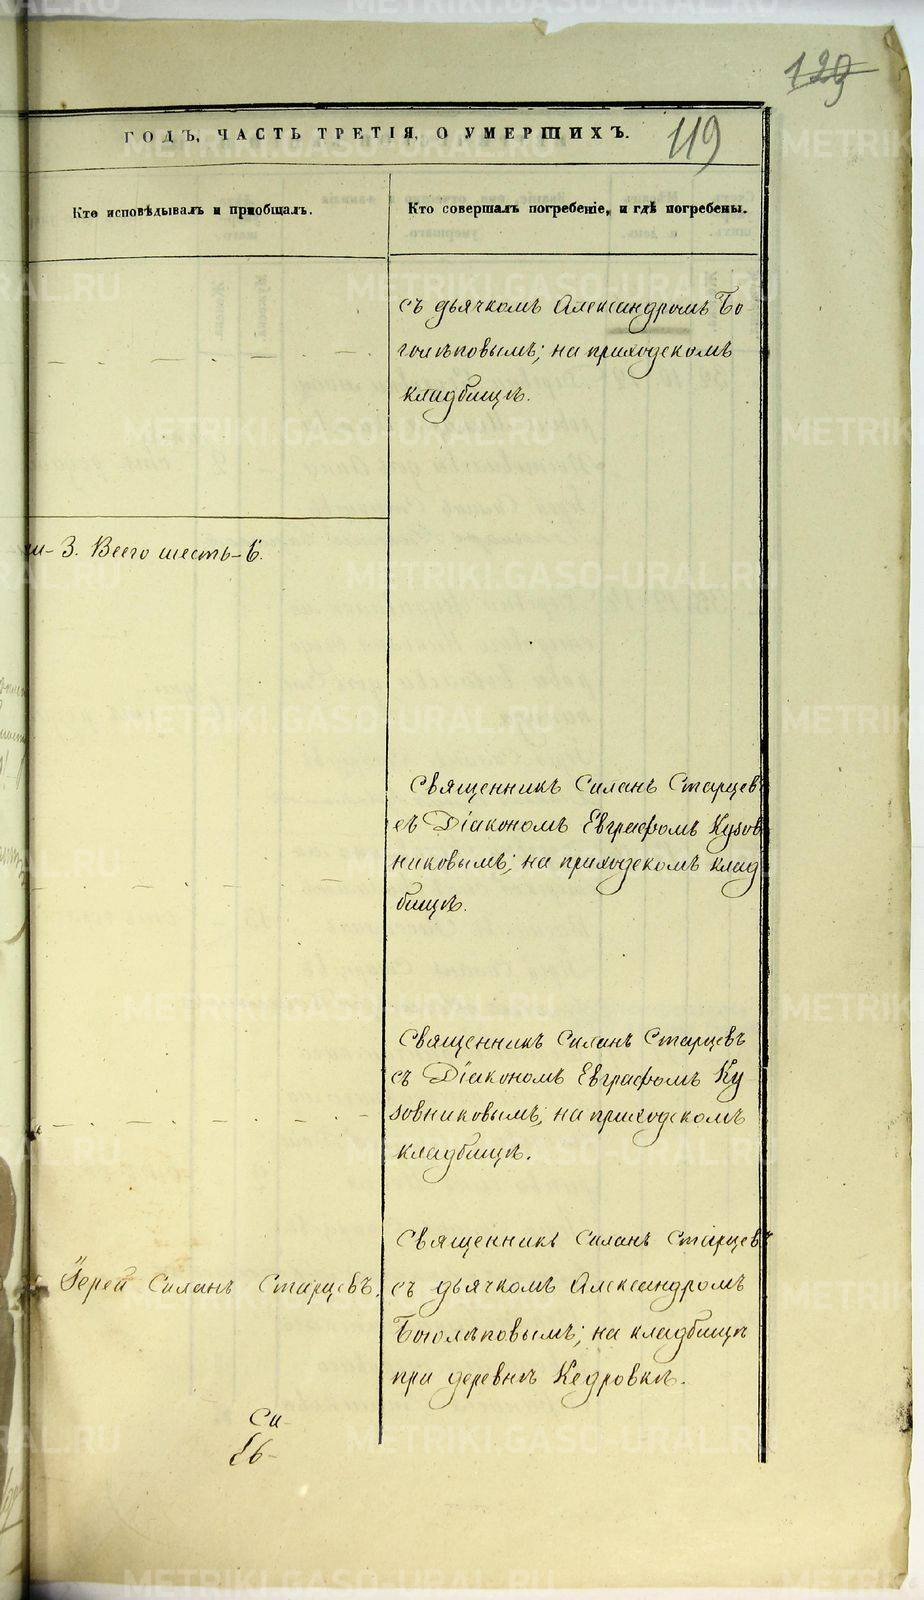 129
ГОДЪ, ЧАСТЬ ТРЕТІЯ, О УМЕРШИХЪ.
119
Кто исповѣдывалъ и пріобщалъ.
Кто совершалъ погребеніе, и гдѣ погребены.
съ дьячкомъ Александромъ Бо-
голѣповымъ; на приходскомъ
кладбищѣ.
3. Всего шесть-6.
Священникъ Силанъ Старцевъ
съ Діакономъ Евграфомъ Кузов
никовымъ; на приходскомъ клад
бищѣ.
Священникъ Силанъ Старцевъ
съ Діакономъ Евграфомъ Ку
зовниковымъ; на приходскомъ
кладбищѣ.
Іерей Силанъ Старцевъ.
Священникъ Силанъ Старцевъ
съ дьячкомъ Александромъ
Боголѣповымъ; на кладбищѣ
при деревнѣ Кедровкѣ.
Си-
METRIKI.GASO-URAL.RU